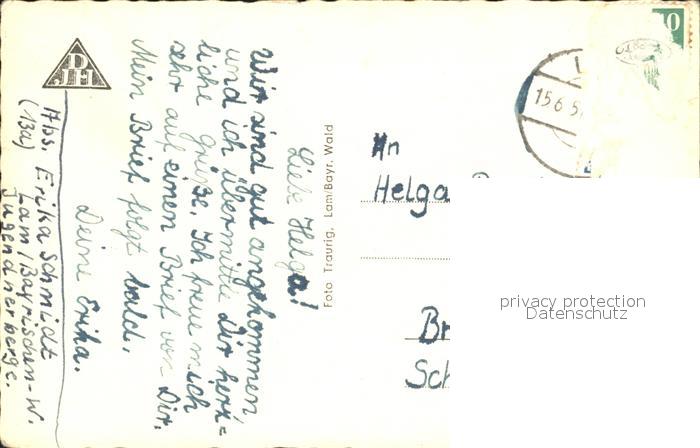 DJH
Liebe Helga!
Wir sind gut angekommen
und ich übermittle Dir herz=
liche Grüße. Ich freue mich
sehr auf einen Brief von Dir.
Mein Brief folgt bald.
Deine Erika.
Abs. Erika Schmidt
(13a) Lam/Bayrischen-W.
Jugendherberge.
Foto Traurig, Lam/Bayr. Wald
10
15.6.5
An
Helga
Br
Sch
privacy protection
Datenschutz